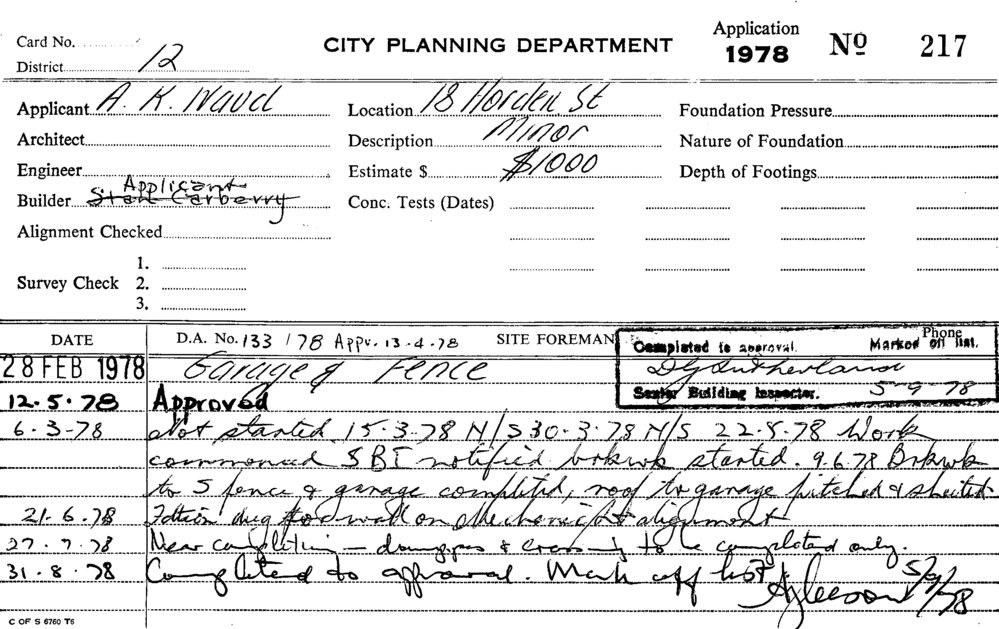 Card No.
District 12
CITY PLANNING DEPARTMENT
Application
1978
No 217
Applicant A. K.
Location 18 Horden St
Foundation Pressure
Architect
Description Minor
Nature of Foundation
Engineer
Estimate $ $1000
Depth of Footings
Applicant
Builder Stan Carberry
Conc. Tests (Dates)
Alignment Checked
1.
Survey Check 2.
3.
DATE
D.A. No. 133 / 78 Appv. 13-4-78
SITE FOREMAN
Phone
Completed to approval. Marked off list.
28 FEB 1978 Garage & Fence
D Sutherland
Senior Building Inspector. 5-9-78
12.5.78 Approved
6-3-78 Not started 15-3-78 N/S 30-3-78 N/S 22-5-78 Work
commenced SBI notified brkwk started. 9.6.78 Brkwk
to S fence & garage completed, roof to garage pitched & sheeted
21.6.78 dug for wall on Mechanic St alignment
27.7.78 Near completion - downpipes & crossing to be completed only.
31.8.78 Completed to approval. Mark off list
5/9/78
C OF S 6760 T6